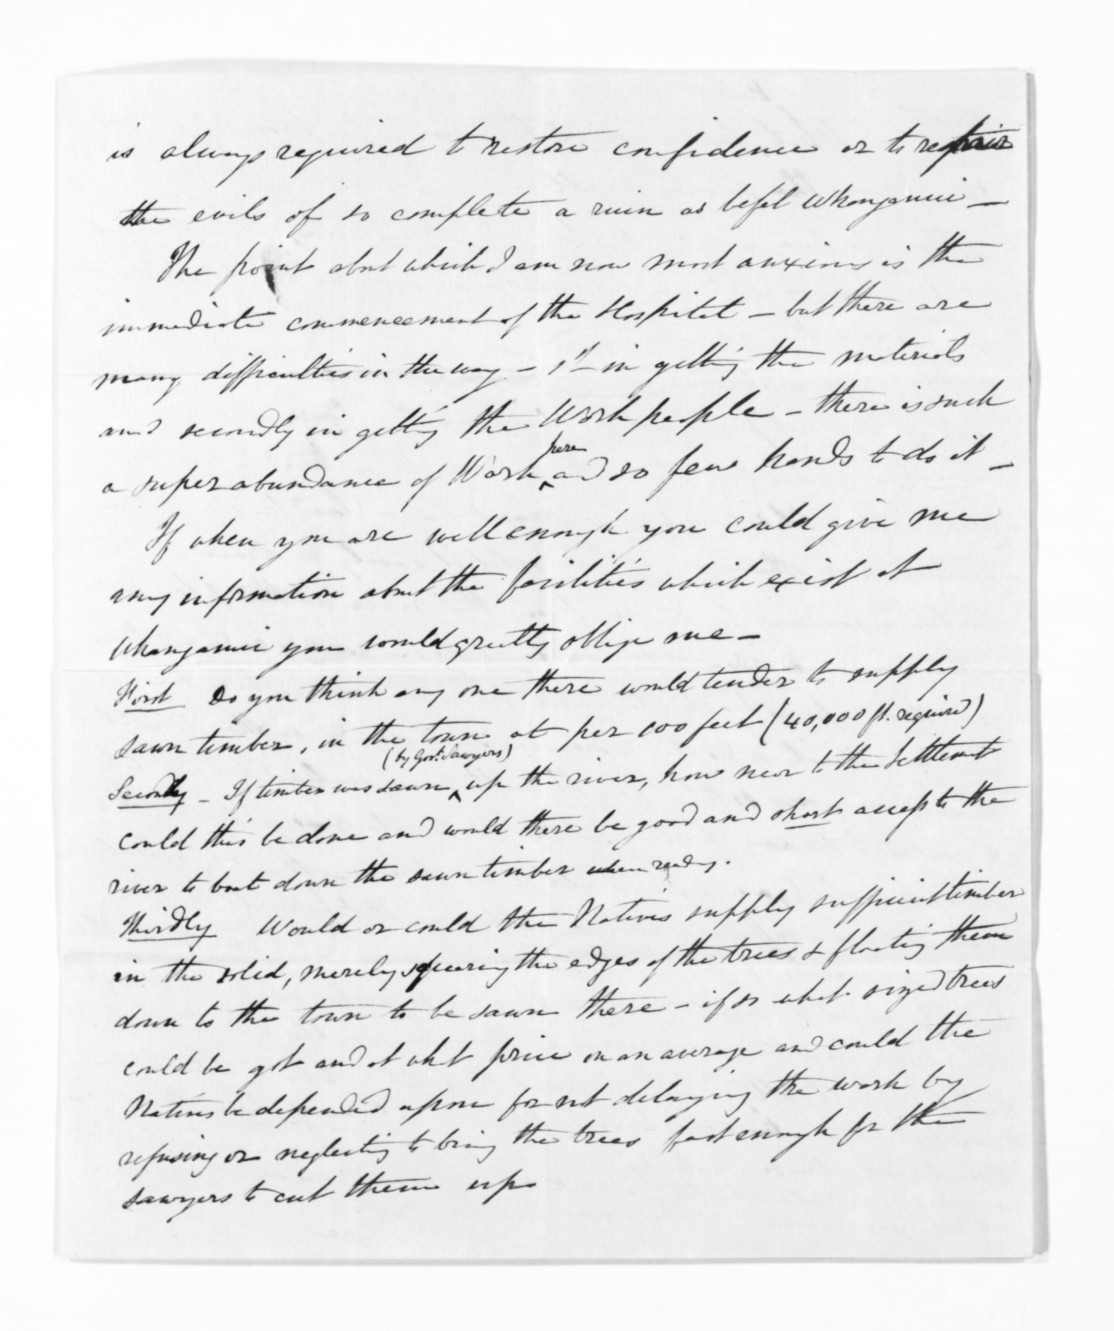 is always required to restore confidence or to repair
the evils of so complete a ruin as befel Whanganui —
The point abut which I am now most anxious is the
immediate commencement of the Hospital — but there are
many difficulties in the way — 1st in getting the materials
and secondly in getting the Work people — there is such
a superabundance of Work here and so few hands to do it —
If when you are well enough you could give me
any information about the facilities which exist at
Whanganui you would greatly oblige me —
First Do you think any one there would tender to supply
sawn timber, in the town at per 100 feet (40,000 ft. required)
Secondly — If timber was sawn (by Govt. Sawyers) up the river, how near to the Settlemt
could this be done and would there be good and short access to the
river to boat down the sawn timber when ready.
Thirdly Would or could the Natives supply sufficient timber
in the solid, merely squaring the edges of the trees & floating them
down to the town to be sawn there — if so what sized trees
could be got and at what price on an average and could the
Natives be depended upon for not delaying the work by
refusing or neglecting to bring the trees fast enough for the
sawyers to cut them up